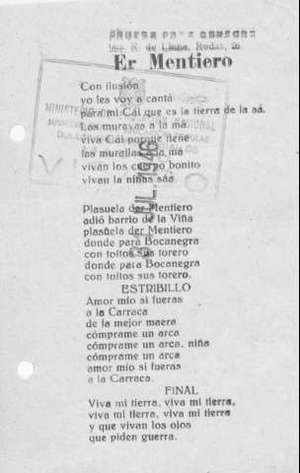 PRUEBA PARA CENSURA
Imp. R. de Llano, Rodas, 26
Er Mentiero
Con ilusión
yo les voy a cantá
para mi Cái que es la tierra de la sá.
Las murayas a la má
viva Cái porque tiene
las murallas a la má
vivan los cuerpo bonito
vivan la niñas sáa
MINISTERIO NACIONAL
JUL. 1946
Plasuela der Mentiero
adió barrio de la Viña
plasuela der Mentiero
donde pará Bocanegra
con toitos sus torero
donde para Bocanegra
con toitos sus torero.
ESTRIBILLO
Amor mío si fueras
a la Carraca
de la mejor maera
cómprame un arca
cómprame un arca, niña
cómprame un arca
amor mío si fueras
a la Carraca.
FINAL
Viva mi tierra, viva mi tierra,
viva mi tierra, viva mi tierra
y que vivan los ojos
que piden guerra.